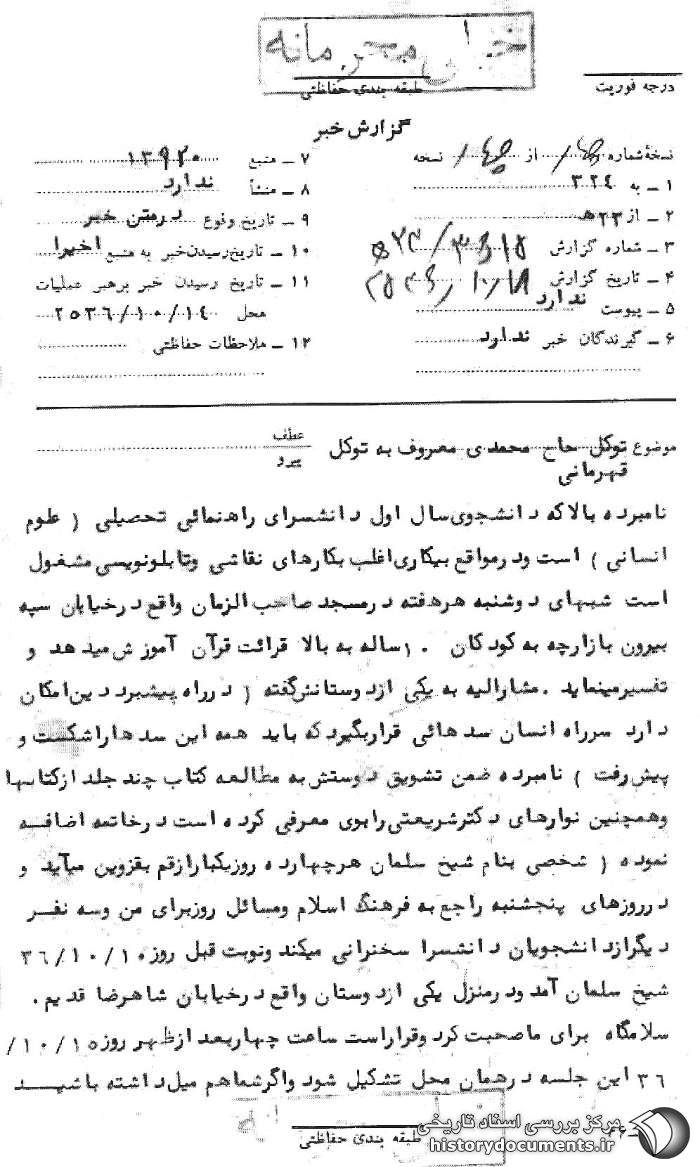 خیلی محرمانه
طبقه بندی حفاظتی
درجه فوریت
گزارش خبر
نسخهٔ شماره از نسخه
۱ ـ به ۳۲۴
۲ ـ از ۲۳ه
۳ ـ شماره گزارش
۴ ـ تاریخ گزارش
۵ ـ پیوست ندارد
۶ ـ گیرندگان خبر ندارد
۷ ـ منبع ۱۳۹۲۰
۸ ـ منشأ ندارد
۹ ـ تاریخ وقوع درمتن خبر
۱۰ ـ تاریخ رسیدن خبر به منبع اخیرا
۱۱ ـ تاریخ رسیدن خبر برهبر عملیات
محل ۲۵۳۶/۱۰/۱۴
۱۲ ـ ملاحظات حفاظتی
موضوع توکل حاج محمدی معروف به توکل
قهرمانی
عطف
پیرو
نامبرده بالاکه دانشجوی سال اول دانشسرای راهنمائی تحصیلی ( علوم
انسانی ) است ودرمواقع بیکاری اغلب بکارهای نقاشی وتابلونویسی مشغول
است شبهای دوشنبه هرهفته درمسجد صاحب الزمان واقع درخیابان سپه
بیرون بازارچه به کودکان ۱۰ساله به بالا قرائت قرآن آموزش میدهد و
تفسیرمینماید .مشارالیه به یکی ازدوستانش گفته ( درراه پیشبرد دین امکان
دارد سرراه انسان سدهائی قراربگیردکه باید همه این سدهاراشکست و
پیش رفت ) نامبرده ضمن تشویق دوستش به مطالعه کتاب چند جلد ازکتابها
وهمچنین نوارهای دکترشریعتی رابوی معرفی کرده است درخاتمه اضافه
نموده ( شخصی بنام شیخ سلمان هرچهارده روزیکبارازقم بقزوین میآید و
درروزهای پنجشنبه راجع به فرهنگ اسلام ومسائل روزبرای من وسه نفر
دیگرازدانشجویان دانشسرا سخنرانی میکند ونوبت قبل روز۳۶/۱۰/۱۰
شیخ سلمان آمد ودرمنزل یکی ازدوستان واقع درخیابان شاهرضا قدیم .
سلامگاه برای ماصحبت کرد وقراراست ساعت چهاربعد ازظهر روز۱۰/۱۵/
۳۶ این جلسه درهمان محل تشکیل شود واگرشماهم میل داشته باشید
طبقه بندی حفاظتی
مرکز بررسی اسناد تاریخی
historydocuments.ir